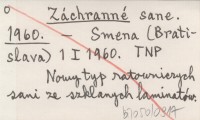 Záchranné sane.
1960. – Smena (Brati-
slava) 1 I 1960. TNP
Nowy typ ratowniczych
sani ze szklanych laminatów.